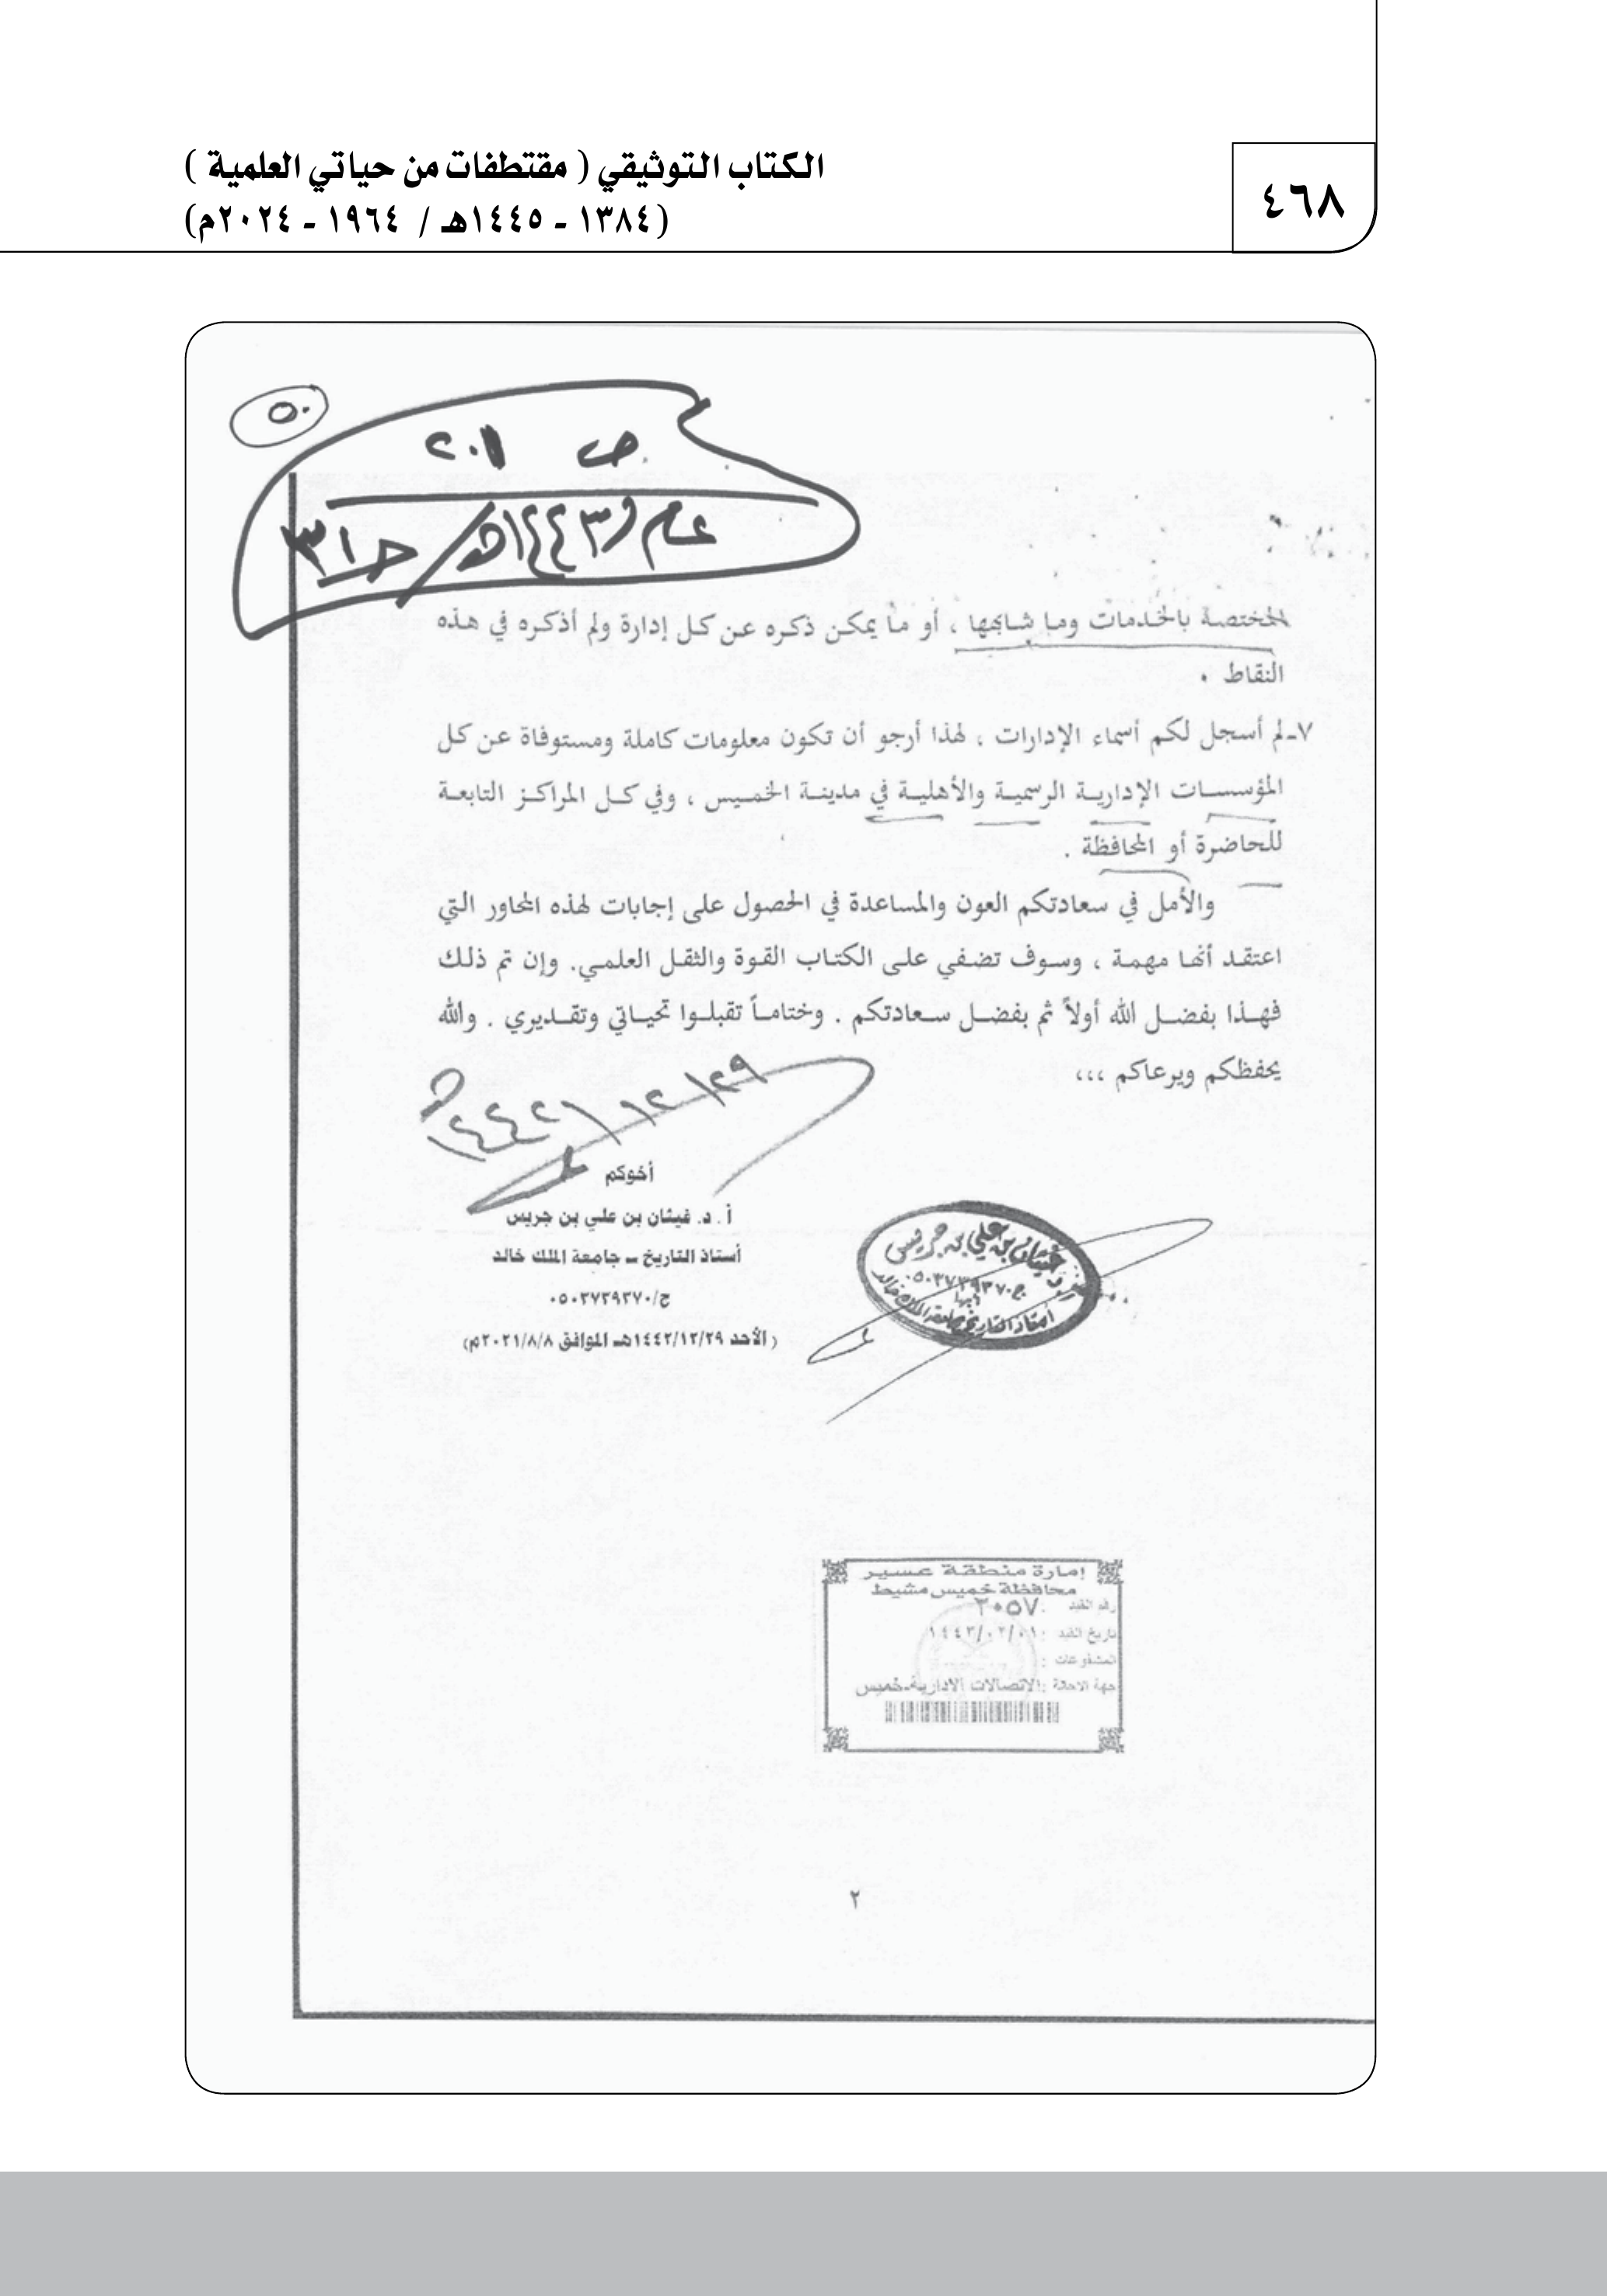 ٤٦٨
الكتاب التوثيقي ( مقتطفات من حياتي العلمية )
(١٣٨٤ - ١٤٤٥هـ / ١٩٦٤ - ٢٠٢٤م)
٥٠
ص ٢٠١
عام ١٤٤٣هـ / ج ٣١
المختصة بالخدمات وما شابهها ، أو ما يمكن ذكره عن كل إدارة ولم أذكره في هذه
النقاط .
٧- لم أسجل لكم أسماء الإدارات ، لهذا أرجو أن تكون معلومات كاملة ومستوفاة عن كل
المؤسسات الإدارية الرسمية والأهلية في مدينة الخميس ، وفي كل المراكز التابعة
للحاضرة أو المحافظة .
والأمل في سعادتكم العون والمساعدة في الحصول على إجابات لهذه المحاور التي
اعتقد أنها مهمة ، وسوف تضفي على الكتاب القوة والثقل العلمي. وإن تم ذلك
فهذا بفضل الله أولاً ثم بفضل سعادتكم . وختاماً تقبلوا تحياتي وتقديري . والله
يحفظكم ويرعاكم ،،،
٢٩/١٢/١٤٤٢هـ
أخوكم
أ . د. غيثان بن علي بن جريس
أستاذ التاريخ – جامعة الملك خالد
ج/٠٥٠٣٧٣٩٣٧٠
( الأحد ١٤٤٢/١٢/٢٩هـ الموافق ٢٠٢١/٨/٨م)
غيثان بن علي بن جريس
ج ٠٥٠٣٧٣٩٣٧٠
أبها
أستاذ التاريخ جامعة الملك خالد
إمارة منطقة عسير
محافظة خميس مشيط
رقم القيد : ٢٠٥٧
تاريخ القيد : ١٤٤٣/٠٢/٠١
المشفوعات :
جهة الاحالة : الاتصالات الادارية-خميس
٢